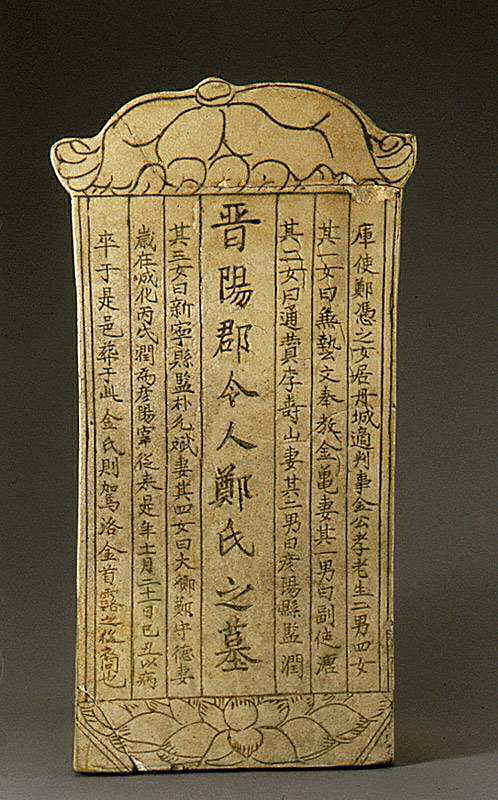 庫使鄭憑之女居丹城適判事金公孝老生二男四女
其一女曰兼藝文奉教金亀妻其一男曰副使
其二女曰通賛李壽山妻其二男曰彦陽縣監潤
晋陽郡令人鄭氏之墓
其三女曰新寧縣監朴允妻其四女曰大卿鄭守德妻
歲在成化丙戌潤為彦陽宰從来是年十一月二十一日己丑以病
卒于是邑葬于此金氏則駕洛金首露之後裔也